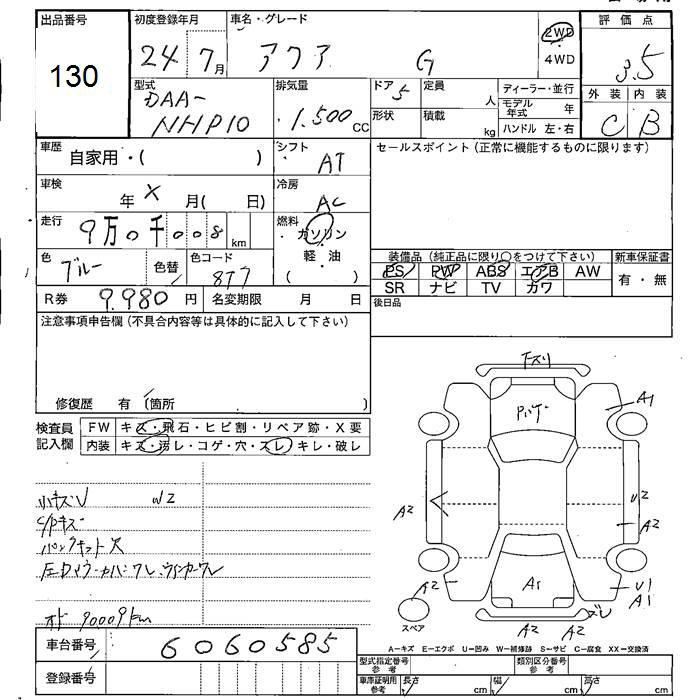 出品番号
130
初度登録年月
24 7月
車名・グレード
アクア G
2WD
4WD
評価点
3.5
外装 内装
C B
型式
DAA-
NHP10
排気量
1.500 CC
ドア 5
定員
人
形状
積載
kg
ディーラー・並行
モデル年式 年
ハンドル 左・右
車歴
自家用・( )
シフト
AT
セールスポイント (正常に機能するものに限ります)
車検
年 X 月( 日)
冷房
AC
走行
9万0千008 km
燃料
ガソリン
軽油
( )
色
ブルー
色替
色コード
8T7
装備品 (純正品に限り○をつけて下さい)
PS PW ABS エアB AW
SR ナビ TV カワ
新車保証書
有・無
R券 9.980 円
名変期限 月 日
後日品
注意事項申告欄 (不具合内容等は具体的に記入して下さい)
修復歴 有 (箇所 )
検査員
記入欄
FW キズ・飛石・ヒビ割・リペア跡・X要
内装 キズ・汚レ・コゲ・穴・スレ・キレ・破レ
小キズU W2
C/Pキズ
パンクキット欠
左Dミラーカバーワレ、ウィンカーワレ
オド 90009km
下スリ
A1
A2
U2
A2
A2
A1
U1
A1
ズレ
A2 A2
スペア
A-キズ E-エクボ U-凹み W-補修跡 S-サビ C-腐食 XX-交換済
車台番号
6060585
登録番号
型式指定番号
参考
類別区分番号
参考
車庫証明用
参考
長さ cm
幅 cm
高さ cm